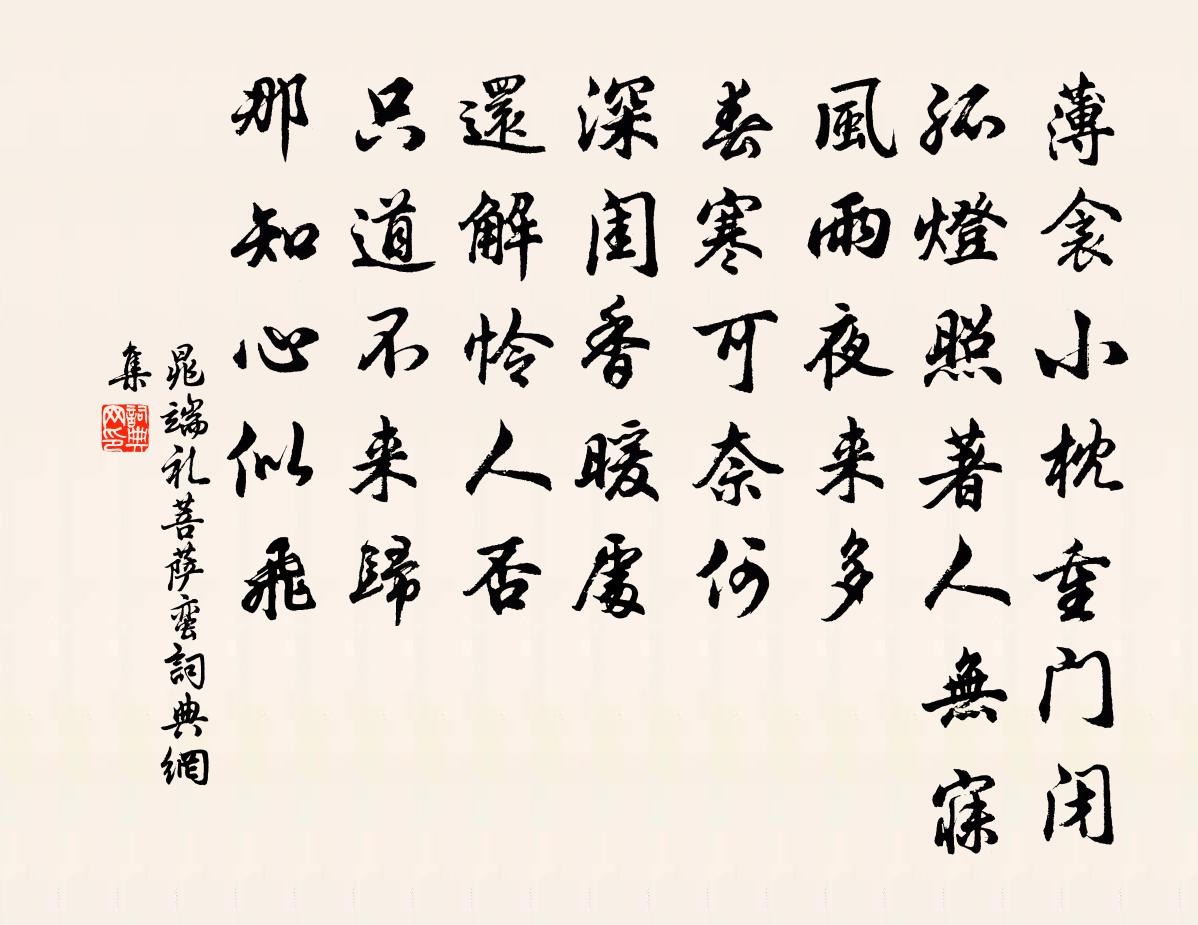 薄衾小枕重门闭
孤燈照著人無寐
風雨夜来多
春寒可奈何
深闺香暖處
還解怜人否
只道不来歸
那知心似飛
晁端礼菩萨蛮詞典網
集
詞典网印